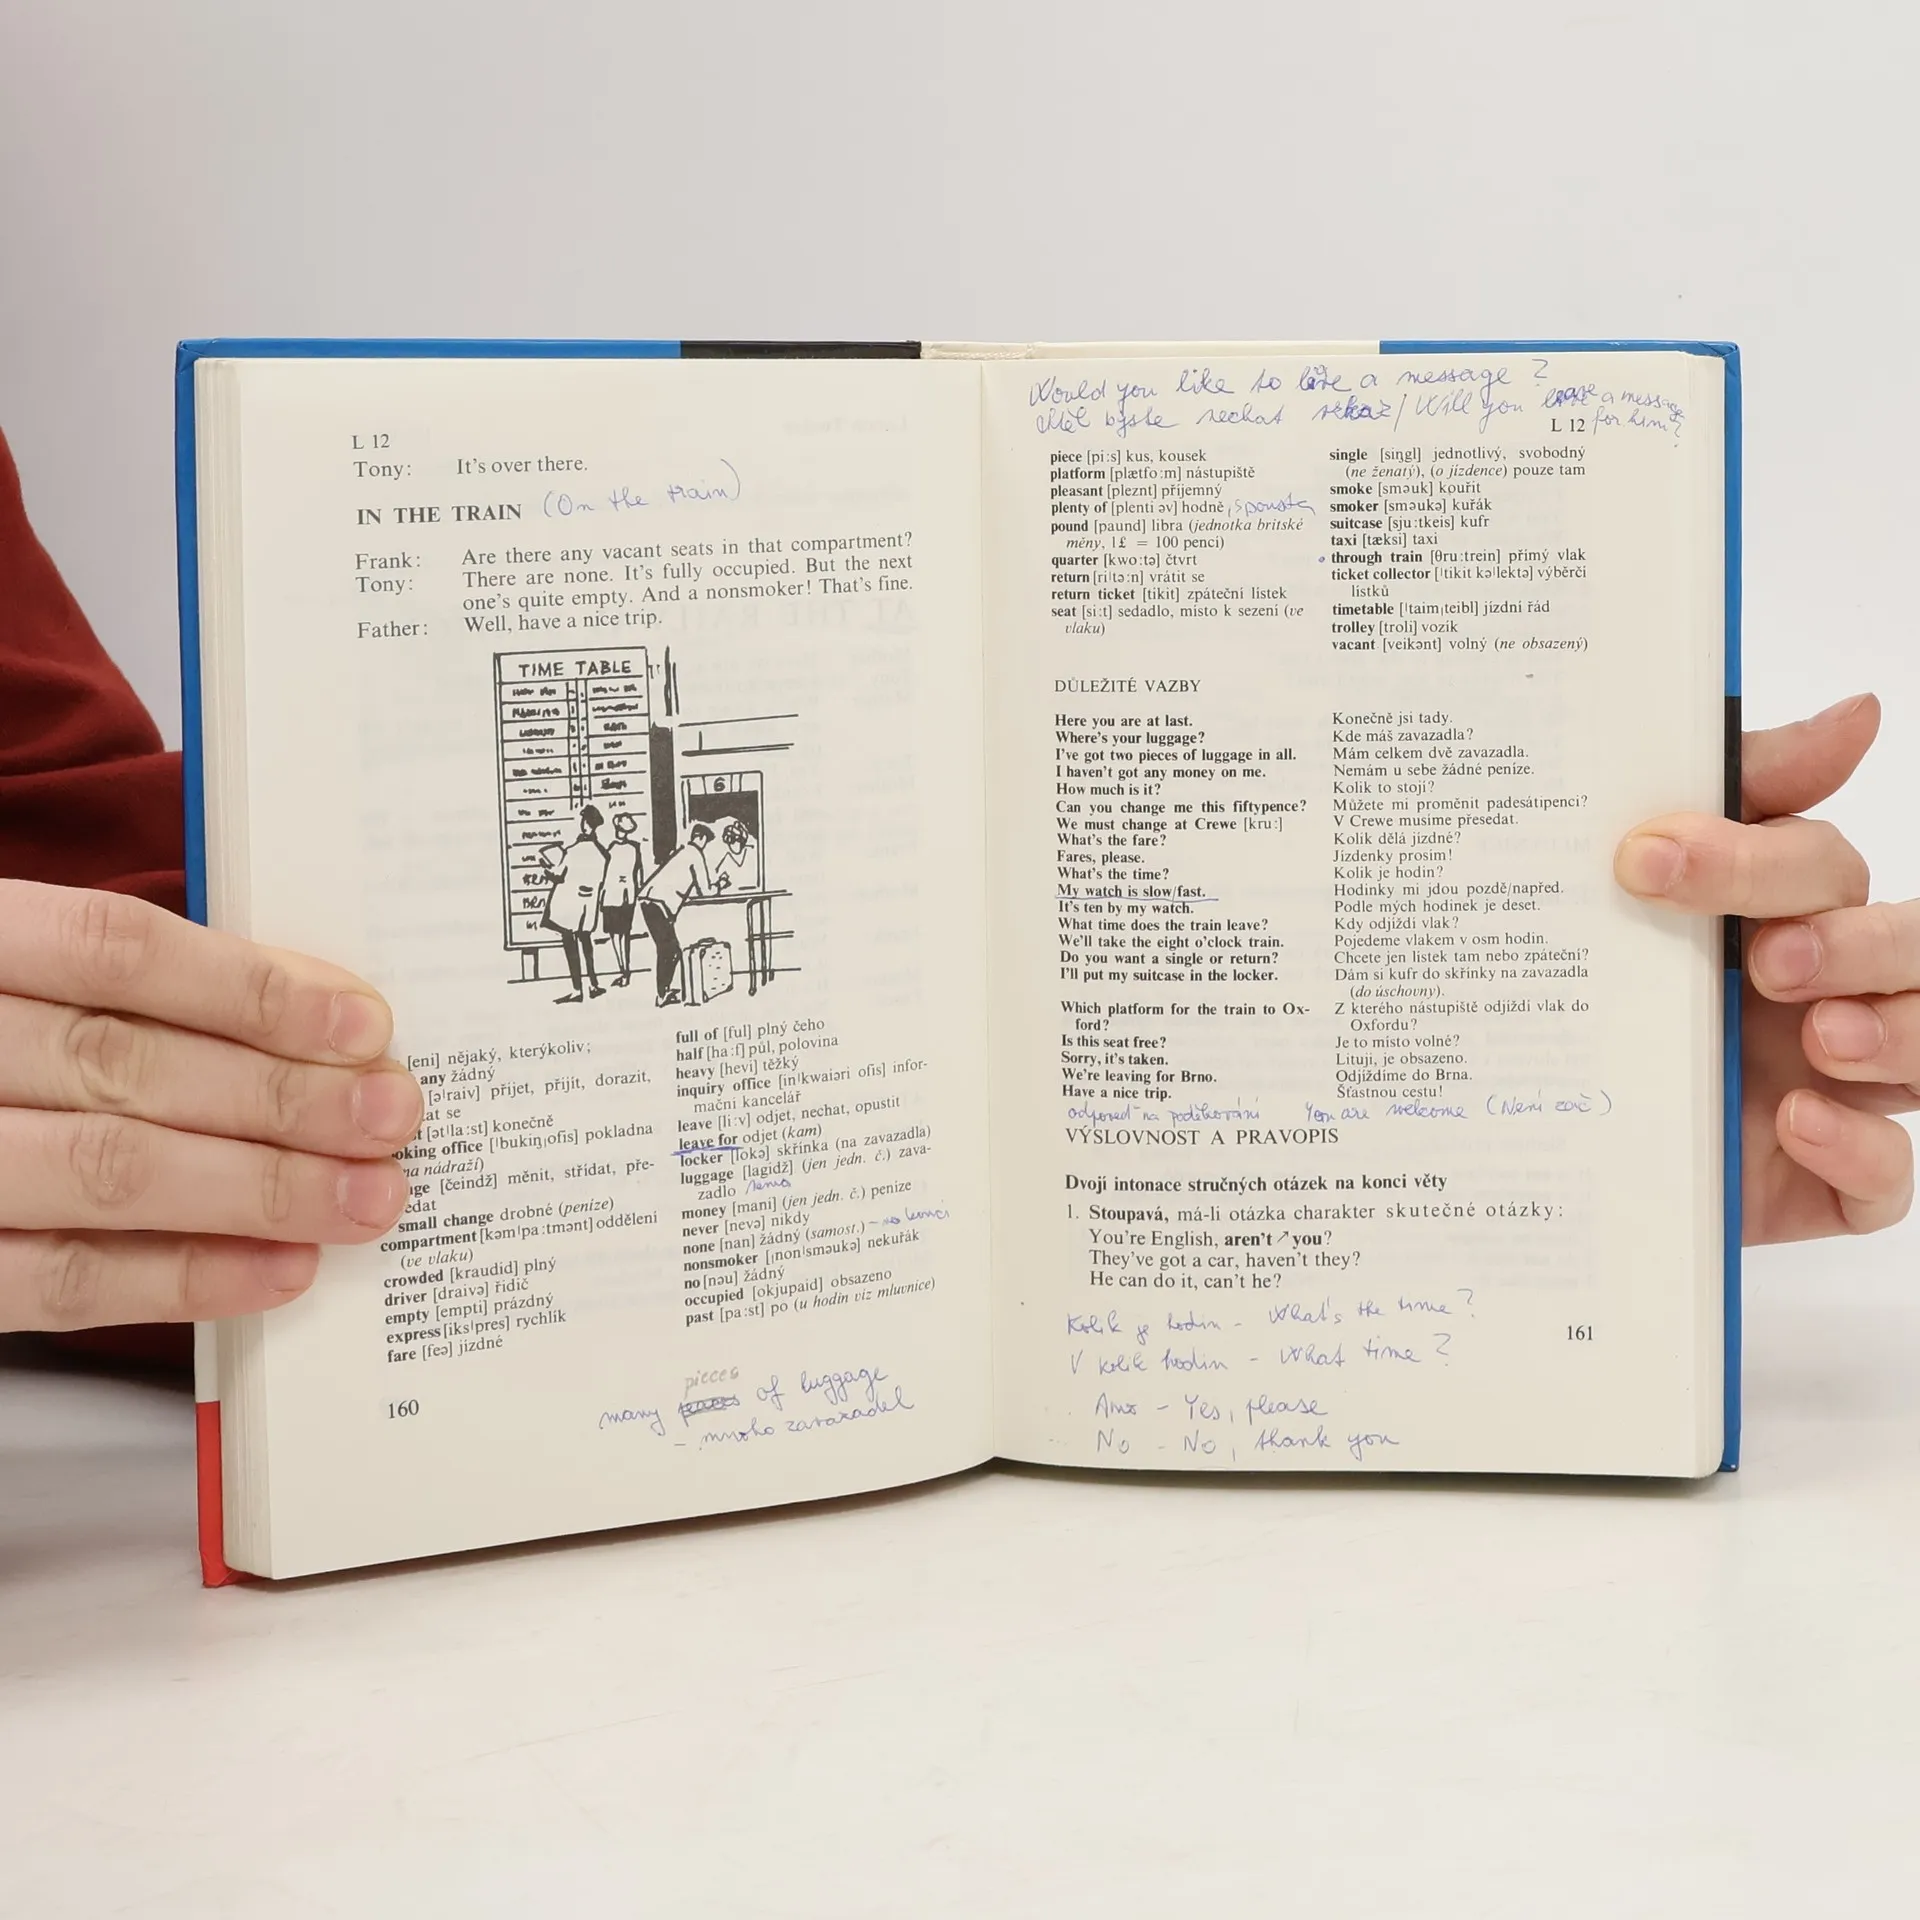 L 12
Tony: It's over there.
IN THE TRAIN (On the train)
Frank: Are there any vacant seats in that compartment?
Tony: There are none. It's fully occupied. But the next
one's quite empty. And a nonsmoker! That's fine.
Father: Well, have a nice trip.
TIME TABLE
6
[eni] nějaký, kterýkoliv;
any žádný
[əˈraiv] přijet, přijít, dorazit,
at se
[ətˈla:st] konečně
oking office [ˈbukiŋˌofis] pokladna
na nádraží)
nge [čeindž] měnit, střídat, pře-
edat
small change drobné (peníze)
compartment [kəmˈpa:tmənt] oddělení
(ve vlaku)
crowded [kraudid] plný
driver [draivə] řidič
empty [empti] prázdný
express [iksˈpres] rychlík
fare [feə] jízdné
full of [ful] plný čeho
half [ha:f] půl, polovina
heavy [hevi] těžký
inquiry office [inˈkwaiəri ofis] infor-
mační kancelář
leave [li:v] odjet, nechat, opustit
leave for odjet (kam)
locker [lokə] skříňka (na zavazadla)
luggage [lagidž] (jen jedn. č.) zava-
zadlo
money [mani] (jen jedn. č.) peníze
never [nevə] nikdy
none [nan] žádný (samost.) – na konci
nonsmoker [ˌnonˈsməukə] nekuřák
no [nəu] žádný
occupied [okjupaid] obsazeno
past [pa:st] po (u hodin viz mluvnice)
pieces
many of luggage
– mnoho zavazadel
160
Would you like to leave a message?
Chtěl byste nechat vzkaz / Will you leave a message
L 12 for him?
piece [pi:s] kus, kousek
platform [plætfo:m] nástupiště
pleasant [pleznt] příjemný
plenty of [plenti əv] hodně, spousta
pound [paund] libra (jednotka britské
měny, 1£ = 100 pencí)
quarter [kwo:tə] čtvrt
return [riˈtə:n] vrátit se
return ticket [tikit] zpáteční lístek
seat [si:t] sedadlo, místo k sezení (ve
vlaku)
single [siŋgl] jednotlivý, svobodný
(ne ženatý), (o jízdence) pouze tam
smoke [sməuk] kouřit
smoker [sməukə] kuřák
suitcase [sju:tkeis] kufr
taxi [tæksi] taxi
through train [θru:trein] přímý vlak
ticket collector [ˈtikit kəˈlektə] výběrčí
lístků
timetable [ˈtaimˌteibl] jízdní řád
trolley [troli] vozík
vacant [veikənt] volný (ne obsazený)
DŮLEŽITÉ VAZBY
Here you are at last. Konečně jsi tady.
Where's your luggage? Kde máš zavazadla?
I've got two pieces of luggage in all. Mám celkem dvě zavazadla.
I haven't got any money on me. Nemám u sebe žádné peníze.
How much is it? Kolik to stojí?
Can you change me this fiftypence? Můžete mi proměnit padesátipenci?
We must change at Crewe [kru:] V Crewe musíme přesedat.
What's the fare? Kolik dělá jízdné?
Fares, please. Jízdenky prosím!
What's the time? Kolik je hodin?
My watch is slow/fast. Hodinky mi jdou pozdě/napřed.
It's ten by my watch. Podle mých hodinek je deset.
What time does the train leave? Kdy odjíždí vlak?
We'll take the eight o'clock train. Pojedeme vlakem v osm hodin.
Do you want a single or return? Chcete jen lístek tam nebo zpáteční?
I'll put my suitcase in the locker. Dám si kufr do skříňky na zavazadla
(do úschovny).
Which platform for the train to Ox- Z kterého nástupiště odjíždí vlak do
ford? Oxfordu?
Is this seat free? Je to místo volné?
Sorry, it's taken. Lituji, je obsazeno.
We're leaving for Brno. Odjíždíme do Brna.
Have a nice trip. Šťastnou cestu!
odpověď na poděkování You are welcome (Není zač)
VÝSLOVNOST A PRAVOPIS
Dvojí intonace stručných otázek na konci věty
1. Stoupavá, má-li otázka charakter skutečné otázky:
You're English, aren't ↗ you?
They've got a car, haven't they?
He can do it, can't he?
Kolik je hodin – What's the time?
V kolik hodin – What time?
Ano – Yes, please
No – No, thank you
161